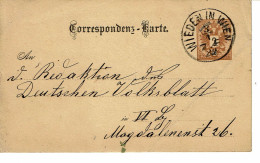 Correspondenz-Karte.
WIEDEN IN WIEN
An
d. Redaktion des
Deutschen Volksblatt
in
Magdalenenst 26.